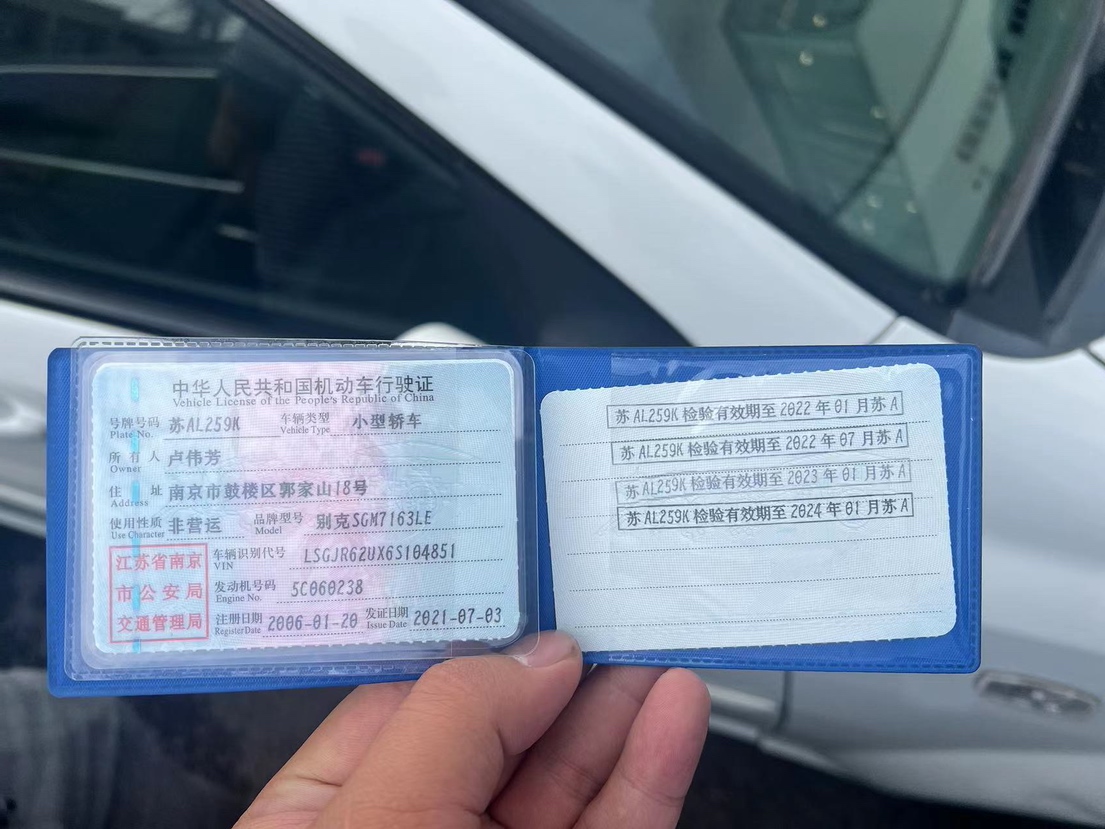 中华人民共和国机动车行驶证
Vehicle License of the People's Republic of China
号牌号码 苏AL259K 车辆类型 小型轿车
Plate No. Vehicle Type
所有人 卢伟芳
Owner
住址 南京市鼓楼区郭家山18号
Address
使用性质 非营运 品牌型号 别克SGM7163LE
Use Character Model
江苏省南京
市公安局
交通管理局
车辆识别代号 LSGJR62UX6S104851
VIN
发动机号码 5C060238
Engine No.
注册日期 2006-01-20 发证日期 2021-07-03
Register Date Issue Date
苏AL259K 检验有效期至 2022 年 01 月苏A
苏AL259K 检验有效期至 2022 年 07 月苏A
苏AL259K 检验有效期至 2023 年 01 月苏A
苏AL259K 检验有效期至 2024 年 01 月苏A